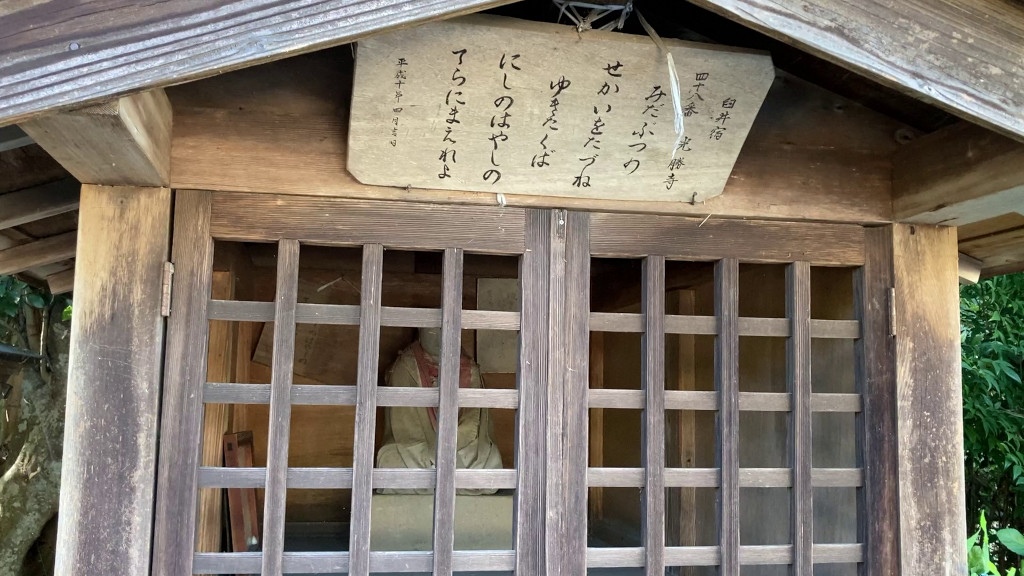 臼井宿
四十八番 光勝寺
みだぶつの
せかいをたづね
ゆきたくば
にしのはやしの
てらにまえれよ
平成十年四月吉日